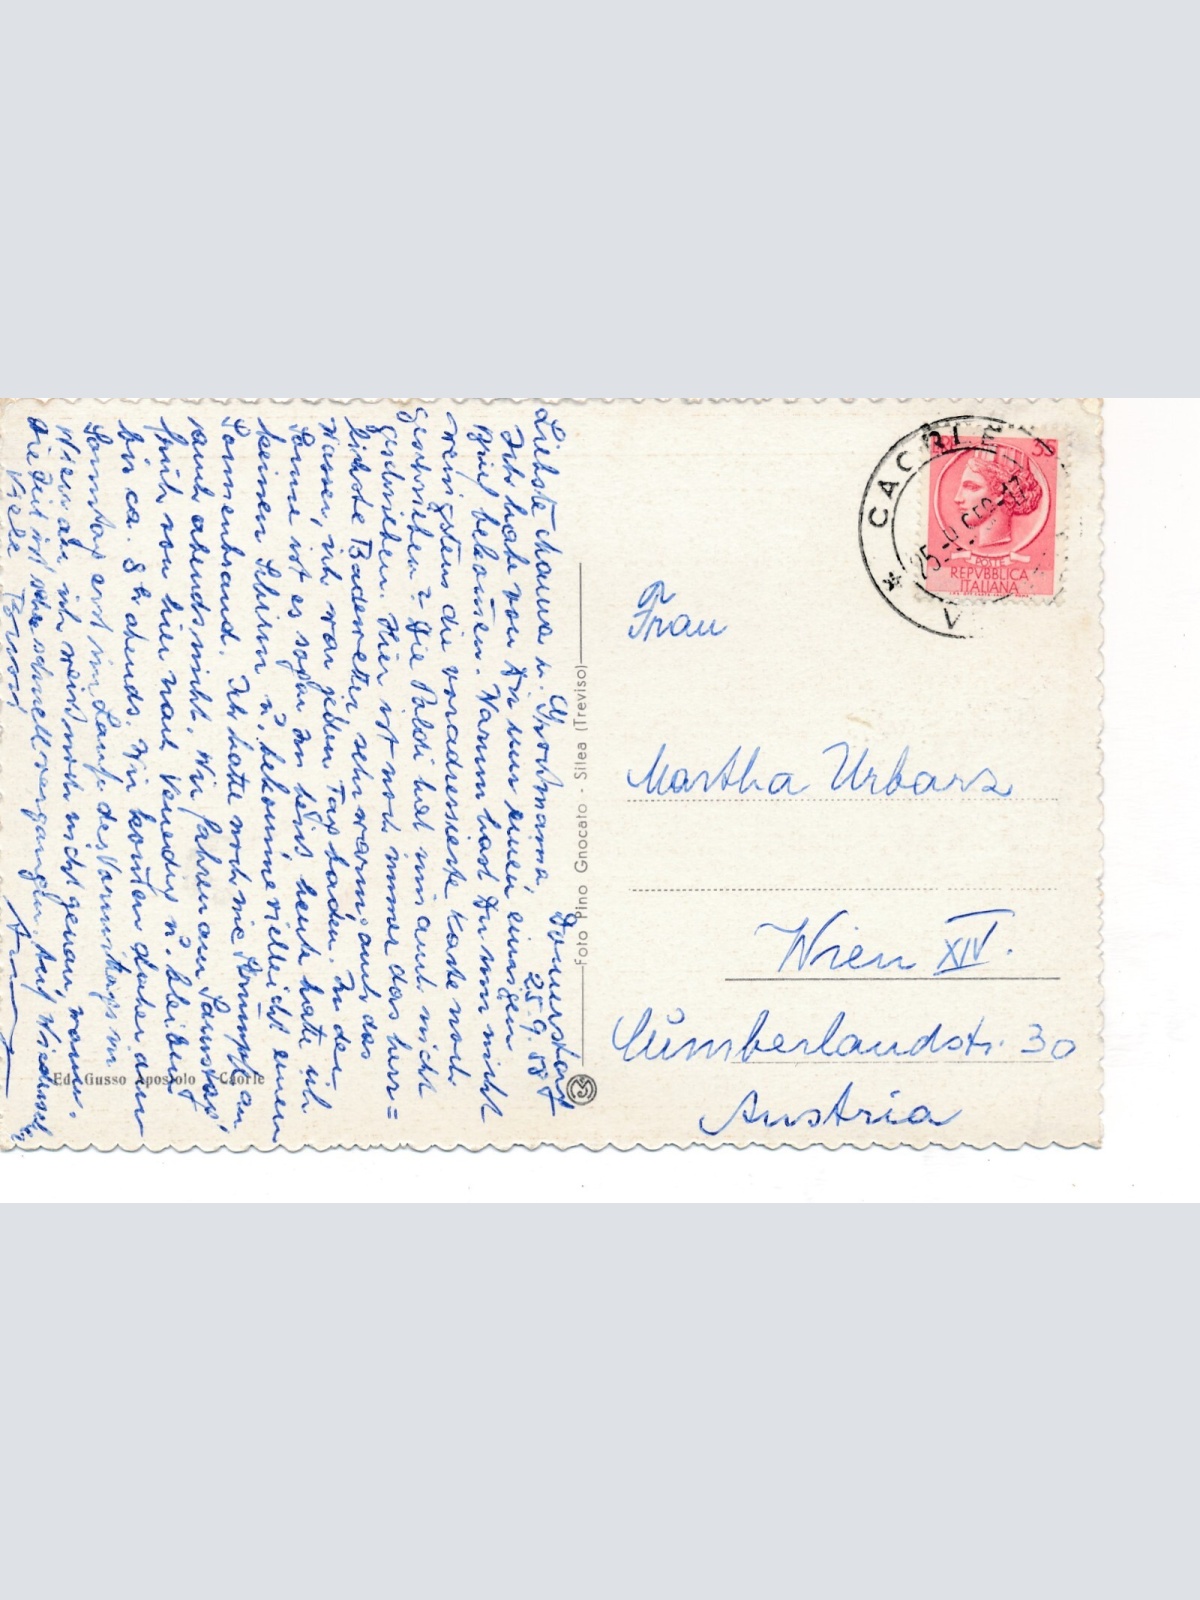 Donnerstag
25.9.58
Liebste Mama u. Grossmama,
Ich habe von Dir nur einen einzigen
Brief bekommen. Warum hast Du mir nicht
wenigstens die voradressierte Karte noch
geschrieben? Die Poldi hat mir auch nicht
geschrieben. Hier ist noch immer das herr=
lichste Badewetter, sehr warm, auch das
Wasser, ich war jeden Tag baden. In der
Sonne ist es sogar zu heiss, heute hatte ich
keinen Schirm u. bekomme vielleicht einen
Sonnenbrand. Ich hatte noch nie Strümpfe an
auch abends nicht. Wir fahren am Samstag
früh von hier nach Venedig u. bleiben
bis ca. 8 h abends. Wir kommen daher am
Sonntag erst im Lauf des Vormittags in
Wien an, ich weiss noch nicht genau, wann.
Die Zeit ist sehr schnell vergangen. Auf Wiedersehen
Viele Bussi
Ed. Gusso Apostolo - Caorle
Foto Pino Gnocato - Silea (Treviso)
CAORLE
25-9-58
POSTE
REPVBBLICA
ITALIANA
Frau
Martha Urbarz
Wien XIV.
Cumberlandstr. 30
Austria